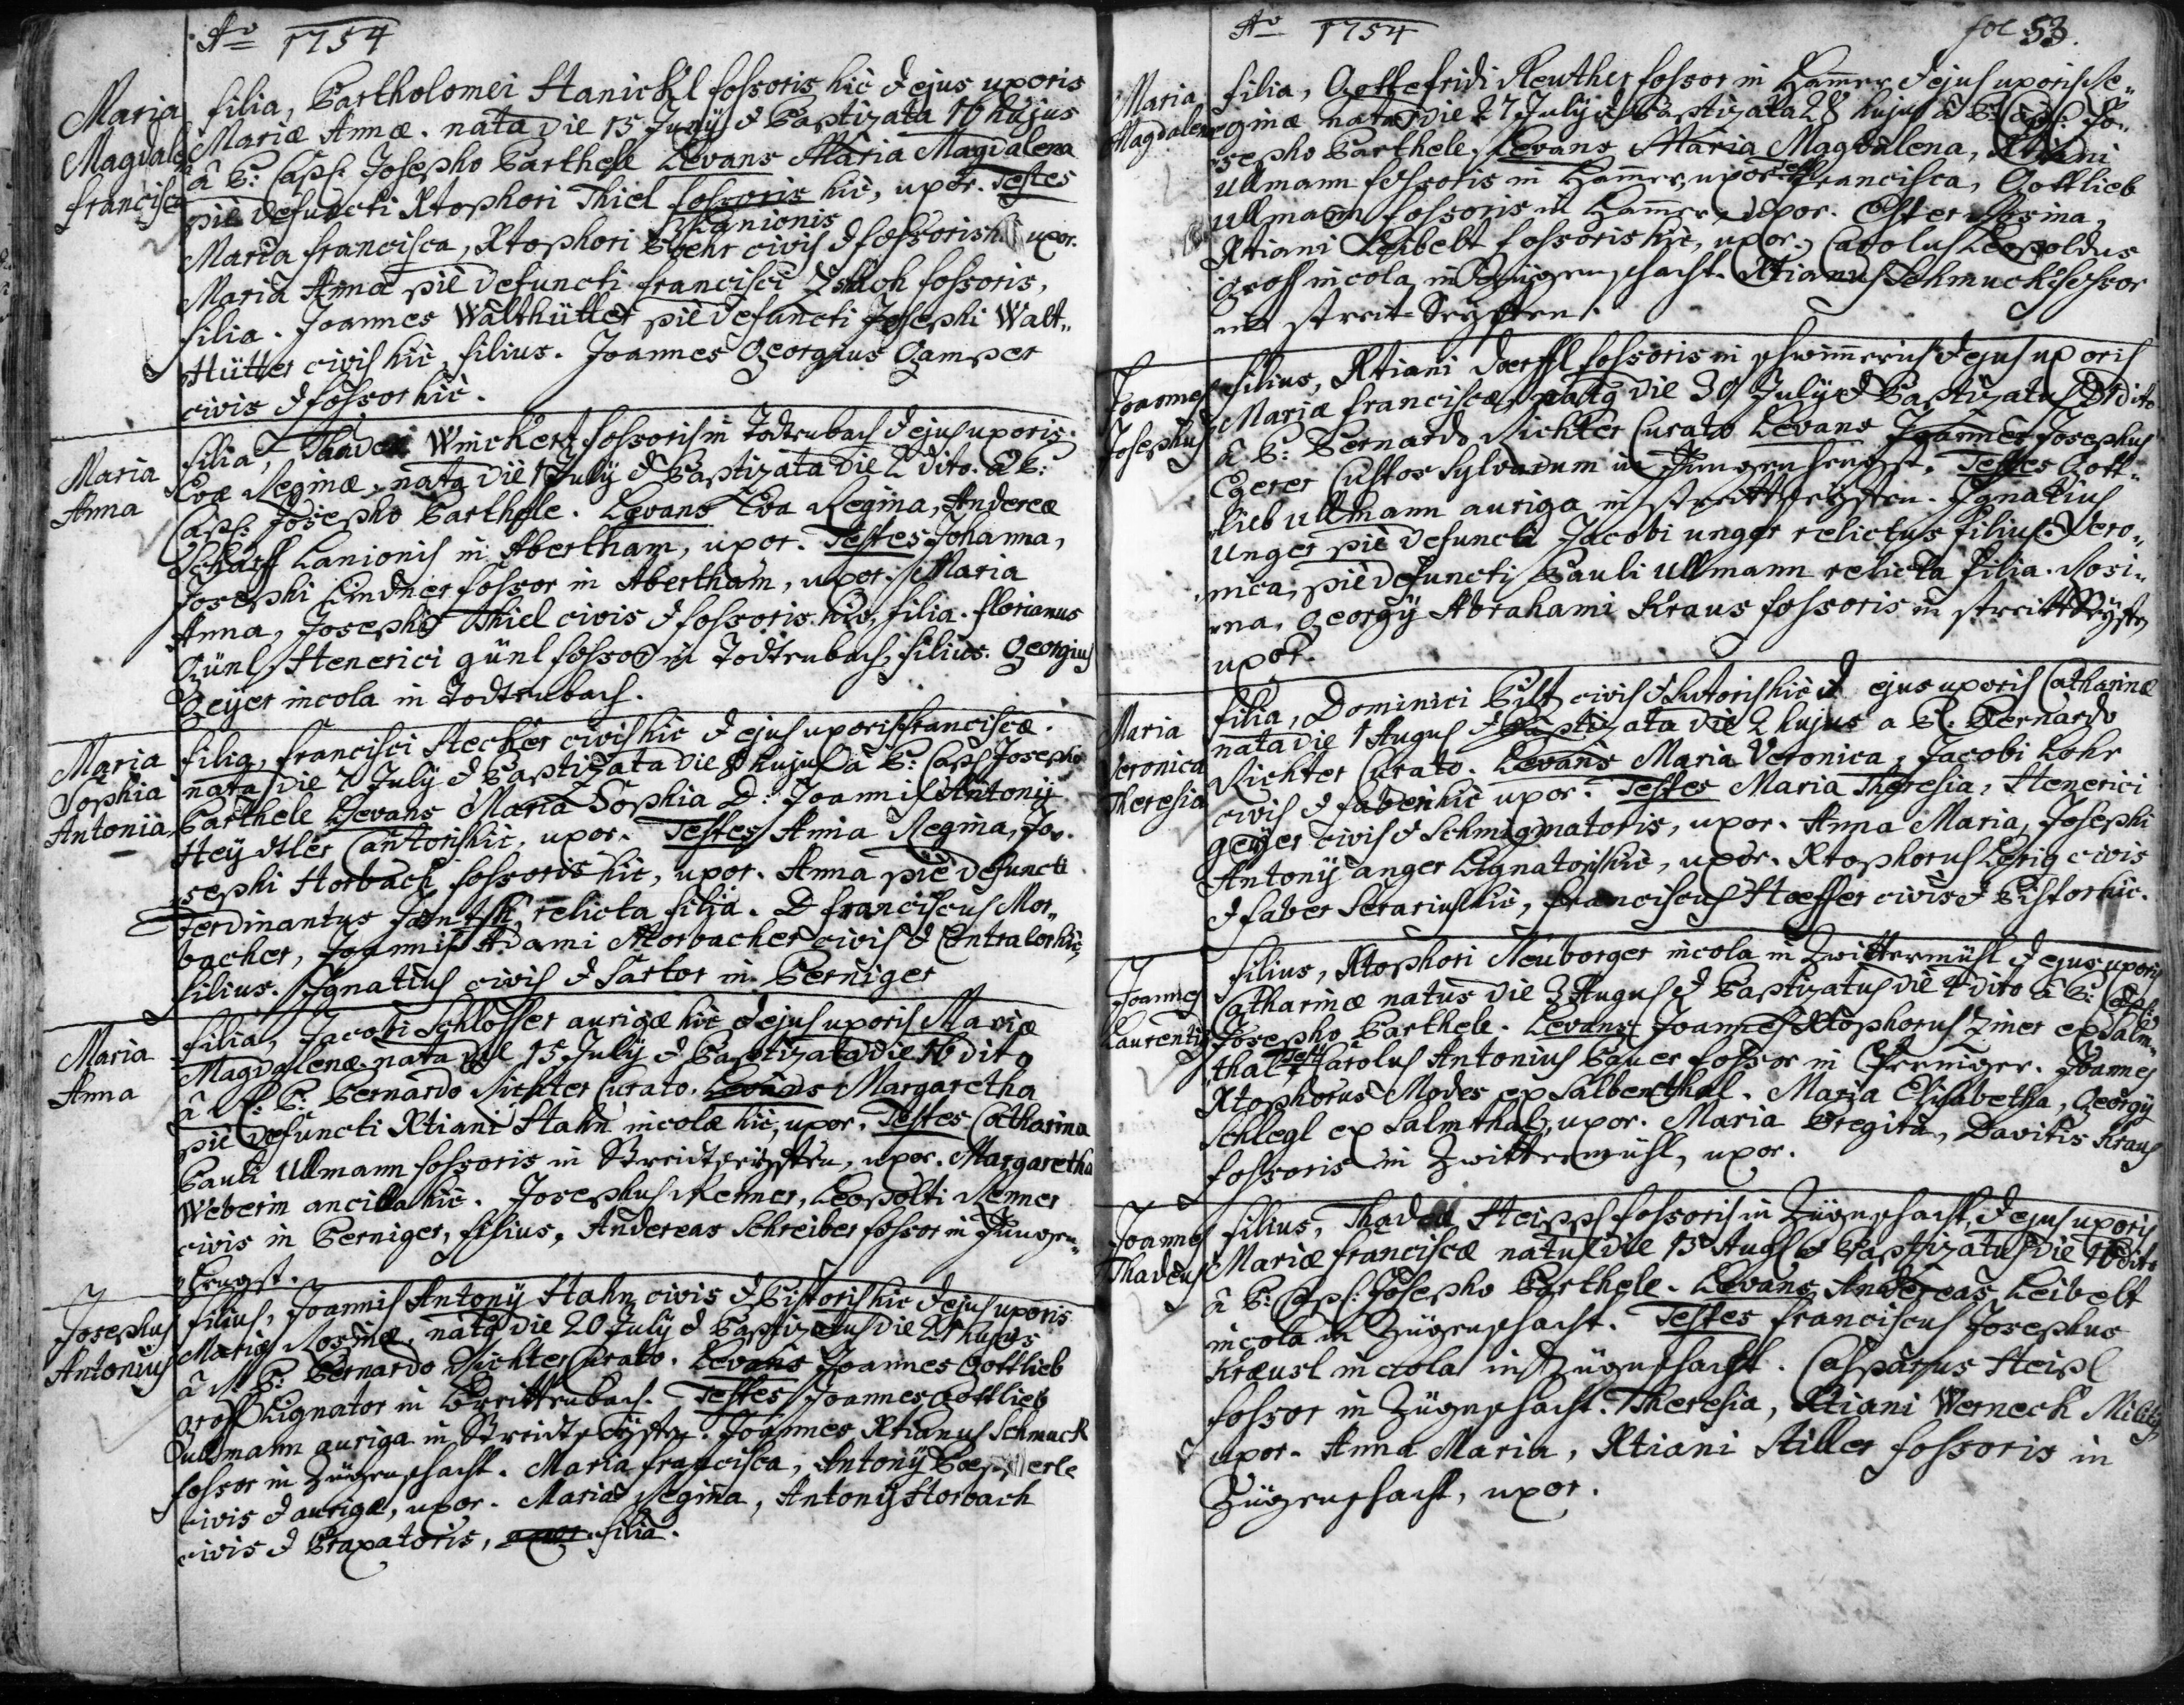 Ao 1754
Maria
Magdale
francisca
filia, Bartholomei Hanickl fossoris hic & ejus uxoris
Mariæ Annæ. nata die 15 Juny & Baptizata 16 hujus
â P: Capl: Josepho Barthele Levans Maria Magdalena
piè defuncti Xtophori Thiel fossoris hic, uxor. Testes
Lanionis
Maria francisca, Xtophori civis & fossoris h. uxor.
Maria Anna piè defuncti francisci fossoris,
filia. Joannes Walthütter piè defuncti Josephi Walt„
Hütter civis hic, filius. Joannes Georgius Gamper
civis & fossor hic.
Maria
Anna
filia, Thadei Winckert fossoris in Todtenbach & ejus uxoris
Evæ Reginæ. nata die 1 July & Baptizata die 2 dito. â P:
Capl: Josepho Barthele. Levans Eva Regina, Andereæ
Scharff Lanionis in Abertham, uxor. Testes Johanna,
Josephi Lindner fossor in Abertham, uxor. Maria
Anna, Josephi Thiel civis & fossoris hic, filia. florianus
Günl, Henerici günl fossor in Todtenbach, filius. Georgius
Geyer incola in Todtenbach.
Maria
Sophia
Antonia
filia, francisci Hecker civis hic & ejus uxoris franciscæ.
nata die 7 July & Baptizata die 8 hujus â P: Capl Josepho
Barthele Levans Maria Sophia D: Joannis Antony
Heydtler Cantoris hic, uxor. Testes Anna Regina, Jo„
sephi Horbach fossoris hic, uxor. Anna piè defuncti
Ferdinantus relicta filia. D franciscus Mor„
bacher, Joannis Adami Morbacher civis & Contralor hic,
filius. Ignatius civis & Sartor in Berniger
Maria
Anna
filia, Jacobi Schlosser aurigæ hic & ejus uxoris Mariæ
Magdalenæ. nata die 15 July & Baptizata die 16 dito
â P: Bernardo Richter Curato. Levans Margaretha
piè defuncti Xtiani Hahn incolæ hic, uxor. Testes Catharina
Pauli Ullmann fossoris in Streidtseyffen, uxor. Margaretha
Weberin ancilla hic. Josephus Renner, Leopolti Renner
civis in Berniger, filius, Andereas Schreiber fossor in Jungen„
hengst.
Josephus
Antonius
filius, Joannis Antony Hahn civis & Pistoris hic & ejus uxoris
Mariæ Rosinæ. nat9 die 20 July & Baptizatus die 21 hujus
â P: Bernardo Richter Curato. Levans Joannes Gottlieb
Gross Lignator in Breittenbach. Testes Joannes Gottlieb
Ullmann auriga in Streidtseyffen. Joannes Xtianus Schmuck
fossor in Zügenschacht. Maria francisca, Antony
civis & aurigæ, uxor. Maria Regina, Antony Horbach
civis & Braxatoris, filia.
Ao 1754
fol 53.
Maria
Magdalena
filia, Gottefridi Reuther fossor in Hamer & ejus uxoris Re„
ginæ nata die 27 July & Baptizata 28 hujus â P: Capl: Jo„
sepho Barthele. Levans Maria Magdalena, Xtiani
Ullmann fossoris in Hamer, uxor. Test francisca, Gottlieb
Ullmann fossoris in Hamer, uxor. Ester Rosina,
Xtiani Leibelt fossoris hic, uxor. Carolus Leopoldus
Gross incola in Zügenschacht. Xtianus Schmuck fossor
in streit Seyffen.
Joannes
Josephus
filius, Xtiani Doerffl fossoris in & ejus uxoris
Mariæ franciscæ, nat9 die 30 July & Baptizatus 31 dito
â P: Bernardo Richter Curato Levans Joannes Josephus
Egerer Custos Sylvarum in Jungenhengst. Testes Gott„
lieb Ullmann auriga in streittseyffen. Ignatius
Unger piè defuncti Jacobi unger relictus filius. Vero„
nica, piè defuncti Pauli Ullmann relicta filia. Rosi„
na, Georgÿ Abrahami Kraus fossoris in streittSeyffen
uxor.
Maria
Veronica
Theresia
filia, Dominici Pilt civis & Sutoris hic & ejus uxoris Catharinæ
nata die 1 Augus & Baptizata die 2 hujus a P: Bernardo
Richter Curato. Levans Maria Veronica, Jacobi Lohr
civis & fabri hic uxor. Testes Maria Theresia, Henerici
geyer civis & Schmigmatoris, uxor. Anna Maria, Josephi
Antony anger Lignatoris hic, uxor. Xtophorus civis
& faber Serarius hic, franciscus Hoeffer civis & Pistor hic.
Joannes
Laurenti9
filius, Xtophori Neuborger incola in Zwittermühl & ejus uxoris
Catharinæ natus die 3 Augus & Baptizatus die 4 dito â P: Capl:
Josepho Barthele. Levans Joannes Xtophorus Ziner ex Salm„
thal Test Carolus Antonius Bauer fossor in Perniger. Joannes
Xtophorus Modes ex Salbenthal. Maria Elisabetha, Georgÿ
Schlegl ex Salmthal, uxor. Maria Bregita, Davitis Kraus
fossoris in Zwittermühl, uxor.
Joannes
Thadeus
filius, Thadei Heippl fossoris in Zügenschacht, & ejus uxoris
Mariæ franciscæ natus die 15 Augs & Baptizatus die 16 dito
â P: Capl: Josepho Barthele. Levans Andereas Leibelt
incola in Zügenschacht. Testes franciscus Josephus
Kreusl incola in Zügenschacht. Casparus Heipl
fossor in Zügenschacht. Theresia, Xtiani Werneck Militis
uxor. Anna Maria, Xtiani Stiller fossoris in
Zügenschacht, uxor.